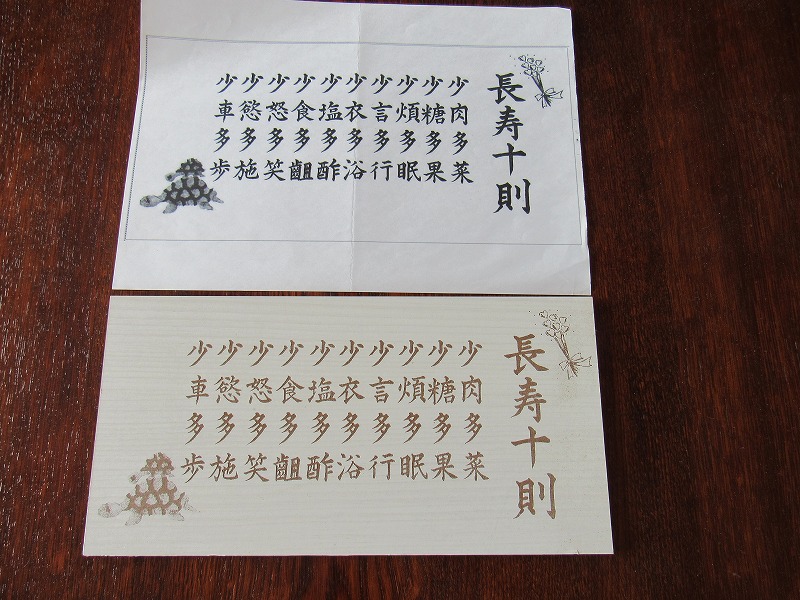 長寿十則
少肉多菜
少糖多果
少煩多眠
少言多行
少衣多浴
少塩多酢
少食多齟
少怒多笑
少慾多施
少車多歩
長寿十則
少肉多菜
少糖多果
少煩多眠
少言多行
少衣多浴
少塩多酢
少食多齟
少怒多笑
少慾多施
少車多歩